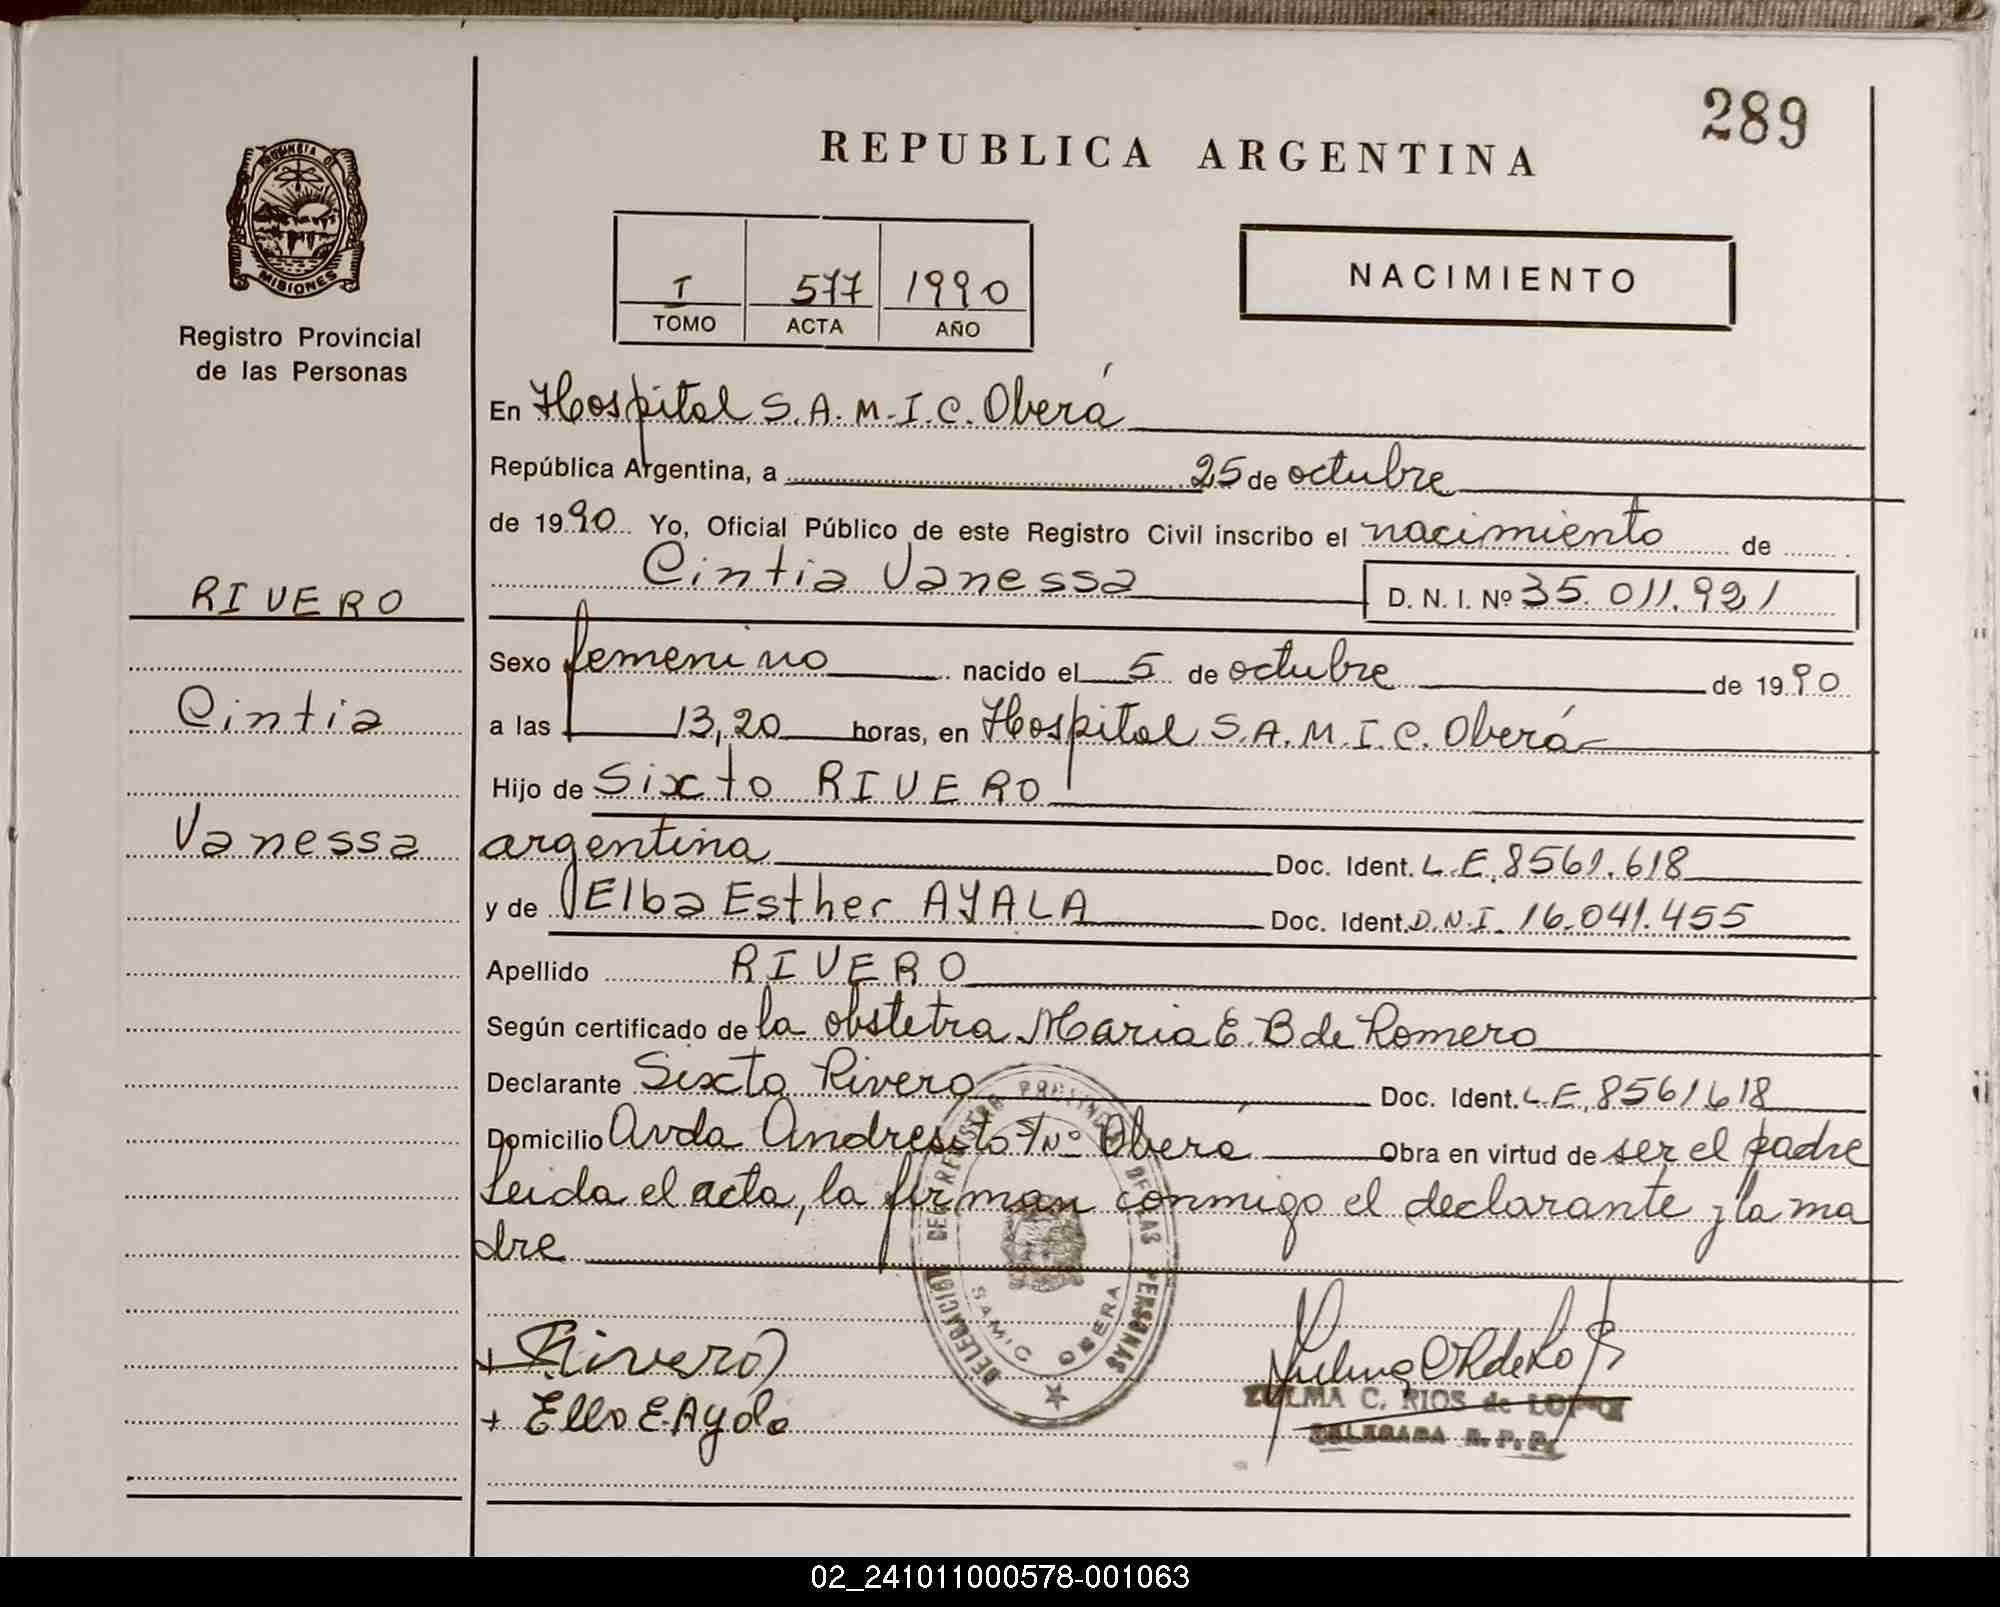 289
REPUBLICA ARGENTINA
PROVINCIA DE
MISIONES
Registro Provincial
de las Personas
I 577 1990
TOMO ACTA AÑO
NACIMIENTO
En Hospital S.A.M.I.C. Oberá
República Argentina, a 25 de octubre
de 1990 Yo, Oficial Público de este Registro Civil inscribo el nacimiento de
Cintia Vanessa D. N. I. Nº 35.011.921
RIVERO
Cintia
Vanessa
Sexo femenino nacido el 5 de octubre de 1990
a las 13,20 horas, en Hospital S.A.M.I.C. Oberá
Hijo de Sixto RIVERO
argentina Doc. Ident. L.E. 8561.618
y de Elba Esther AYALA Doc. Ident. D.N.I. 16.041.455
Apellido RIVERO
Según certificado de la obstetra Maria E. B de Romero
Declarante Sixto Rivero Doc. Ident. L.E. 8561618
Domicilio Avda Andresito S/Nº Oberá Obra en virtud de ser el padre
Leida el acta, la firman conmigo el declarante y la ma
dre
DELEGACION DEL REGISTRO PROVINCIAL DE LAS PERSONAS
SAMIC OBERA
+ Rivero
+ Elba E. Ayala
ZULMA C. RIOS de LOPEZ
DELEGADA R.P.P.
02_241011000578-001063